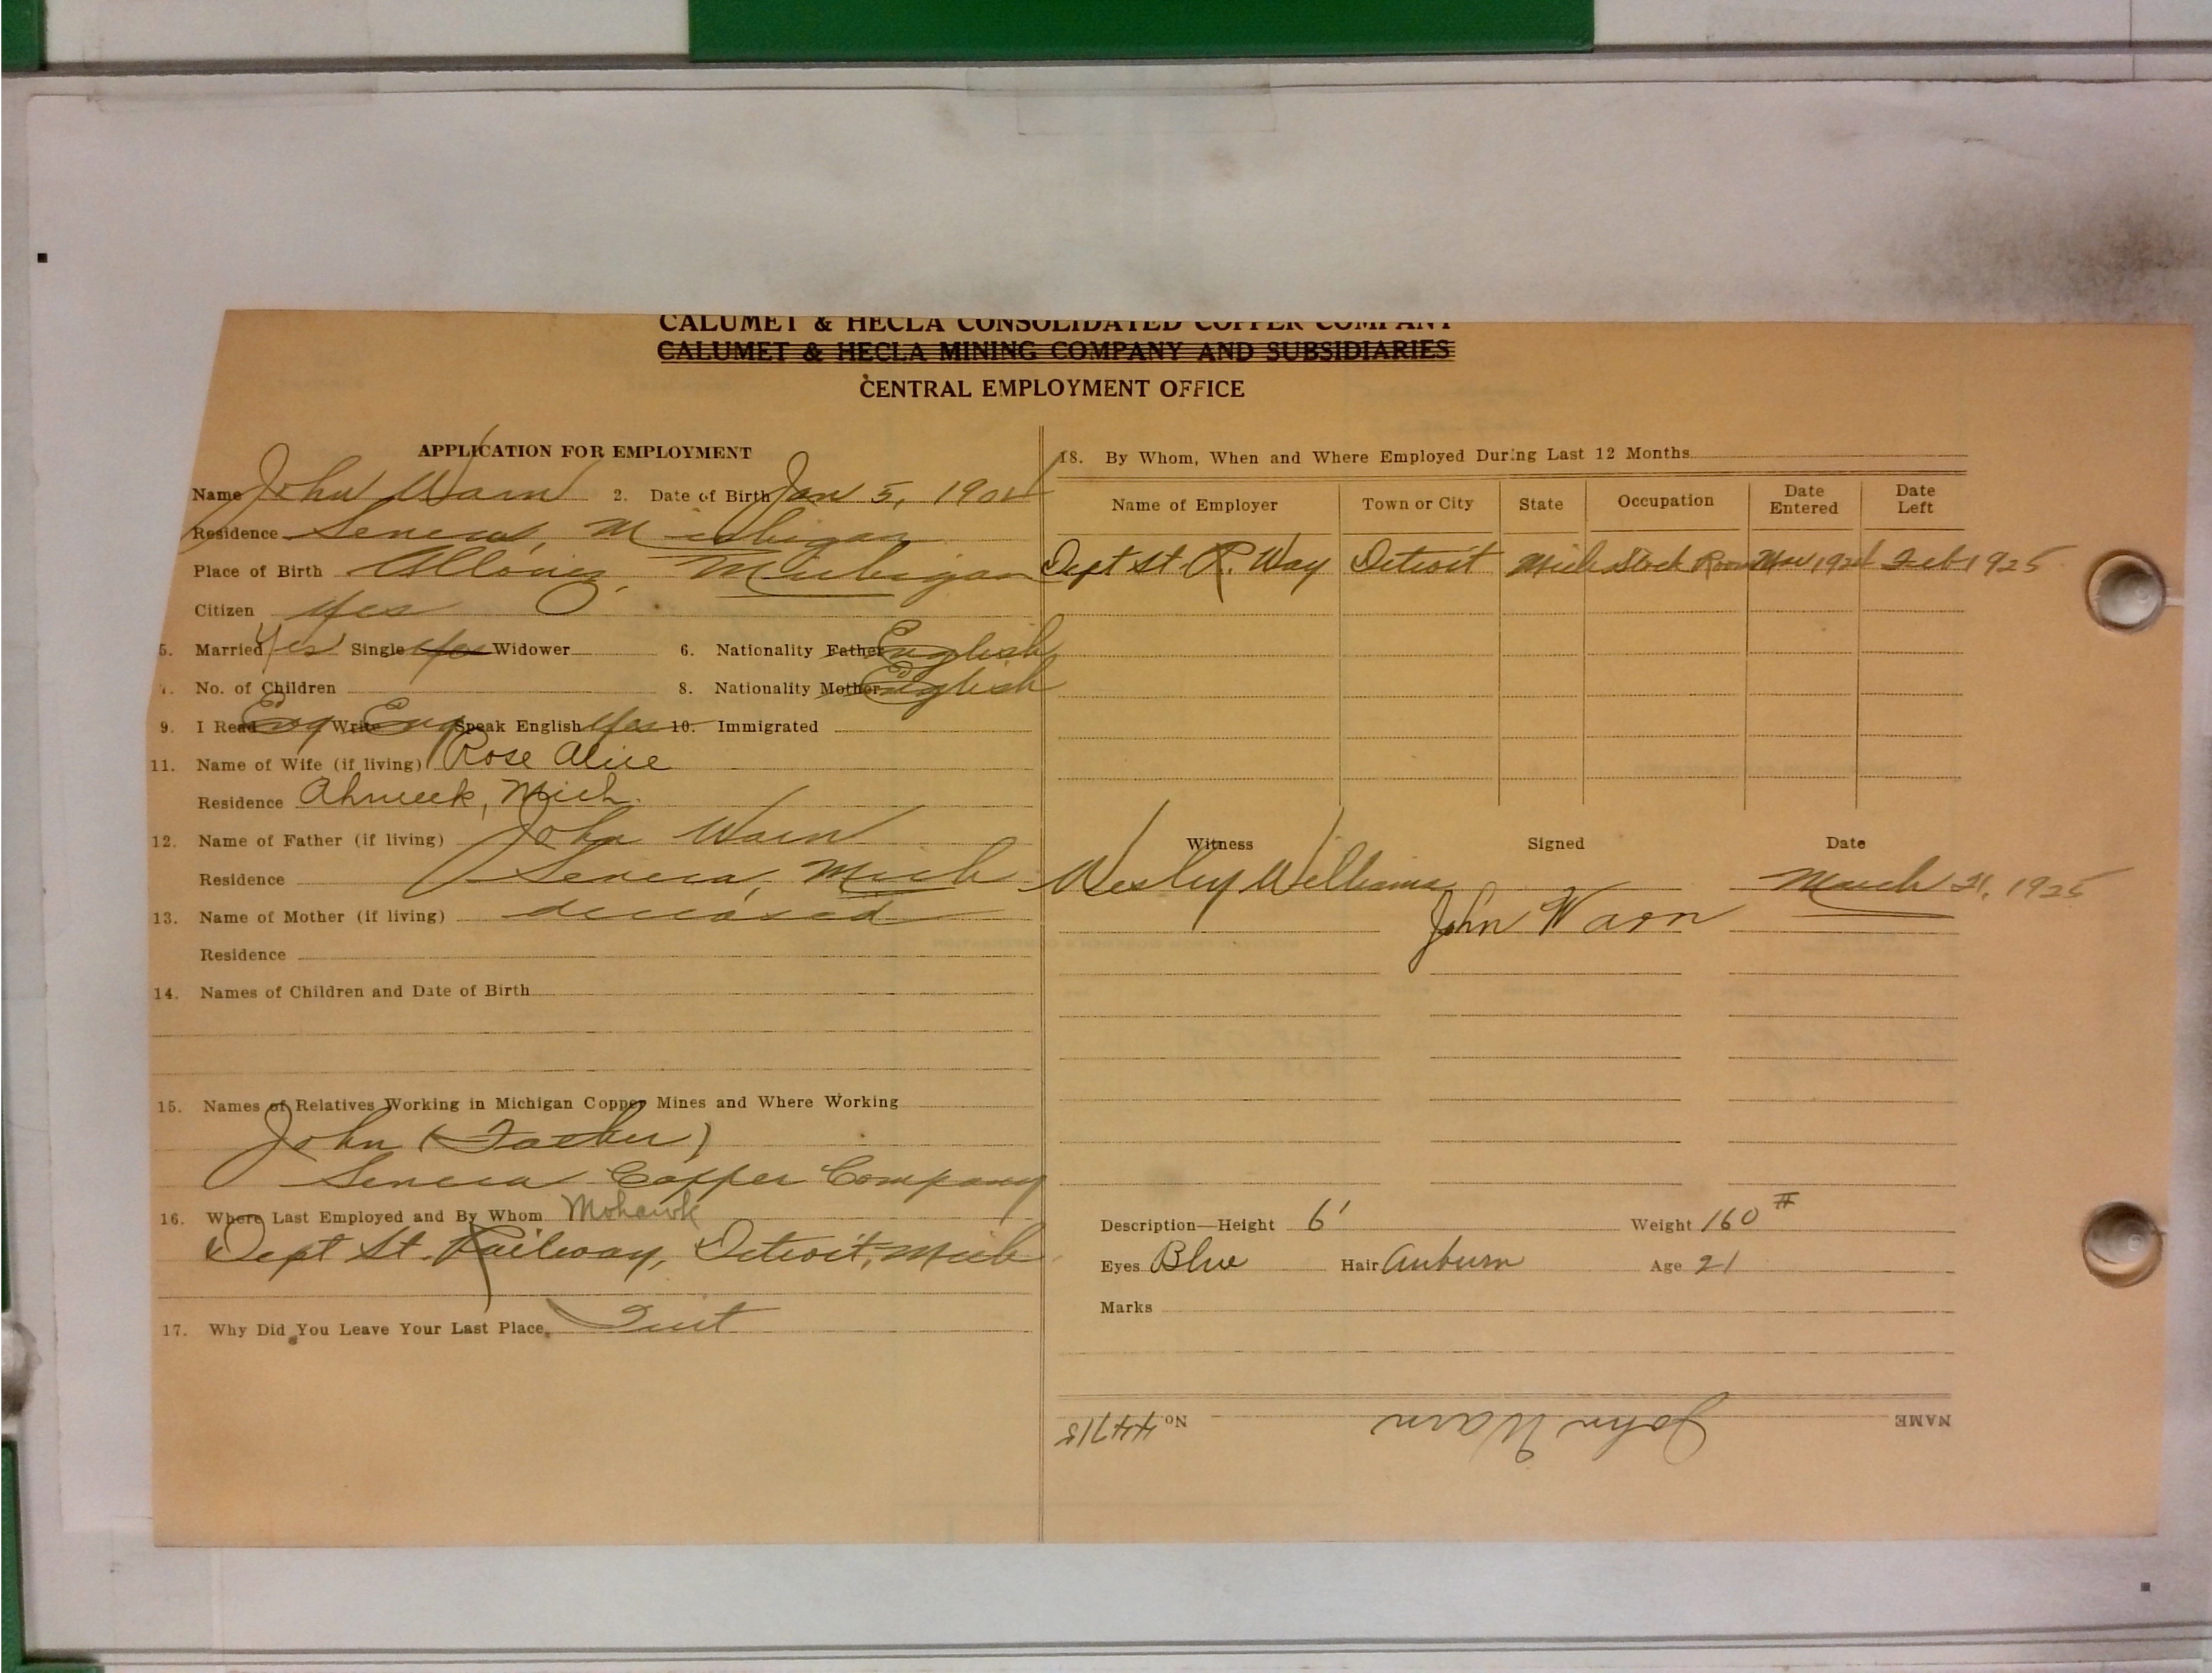 CALUMET & HECLA CONSOLIDATED COPPER COMPANY
CALUMET & HECLA MINING COMPANY AND SUBSIDIARIES
CENTRAL EMPLOYMENT OFFICE
APPLICATION FOR EMPLOYMENT
Name John Warn 2. Date of Birth Jan 5, 1904
Residence Seneca, Michigan
Place of Birth Allouez, Michigan
Citizen Yes
5. Married Yes Single Yes Widower 6. Nationality Father English
7. No. of Children 8. Nationality Mother English
9. I Read Eng Write Eng Speak English Yes 10. Immigrated
11. Name of Wife (if living) Rose Alice
Residence Ahmeek, Mich.
12. Name of Father (if living) John Warn
Residence Seneca, Mich
13. Name of Mother (if living) deceased
Residence
14. Names of Children and Date of Birth
15. Names of Relatives Working in Michigan Copper Mines and Where Working
John (Father)
Seneca Copper Company
16. Where Last Employed and By Whom Mohawk
Dept St. Railway, Detroit, Mich
17. Why Did You Leave Your Last Place. Quit
18. By Whom, When and Where Employed During Last 12 Months
Name of Employer Town or City State Occupation Date Entered Date Left
Dept St. R. Way Detroit Mich Stock Room Nov 1924 Feb 1925
Witness Signed Date
Wesley Williams March 21, 1925
John Warn
Description—Height 6' Weight 160 #
Eyes Blue Hair Auburn Age 21
Marks
NAME John Warn No. 44718